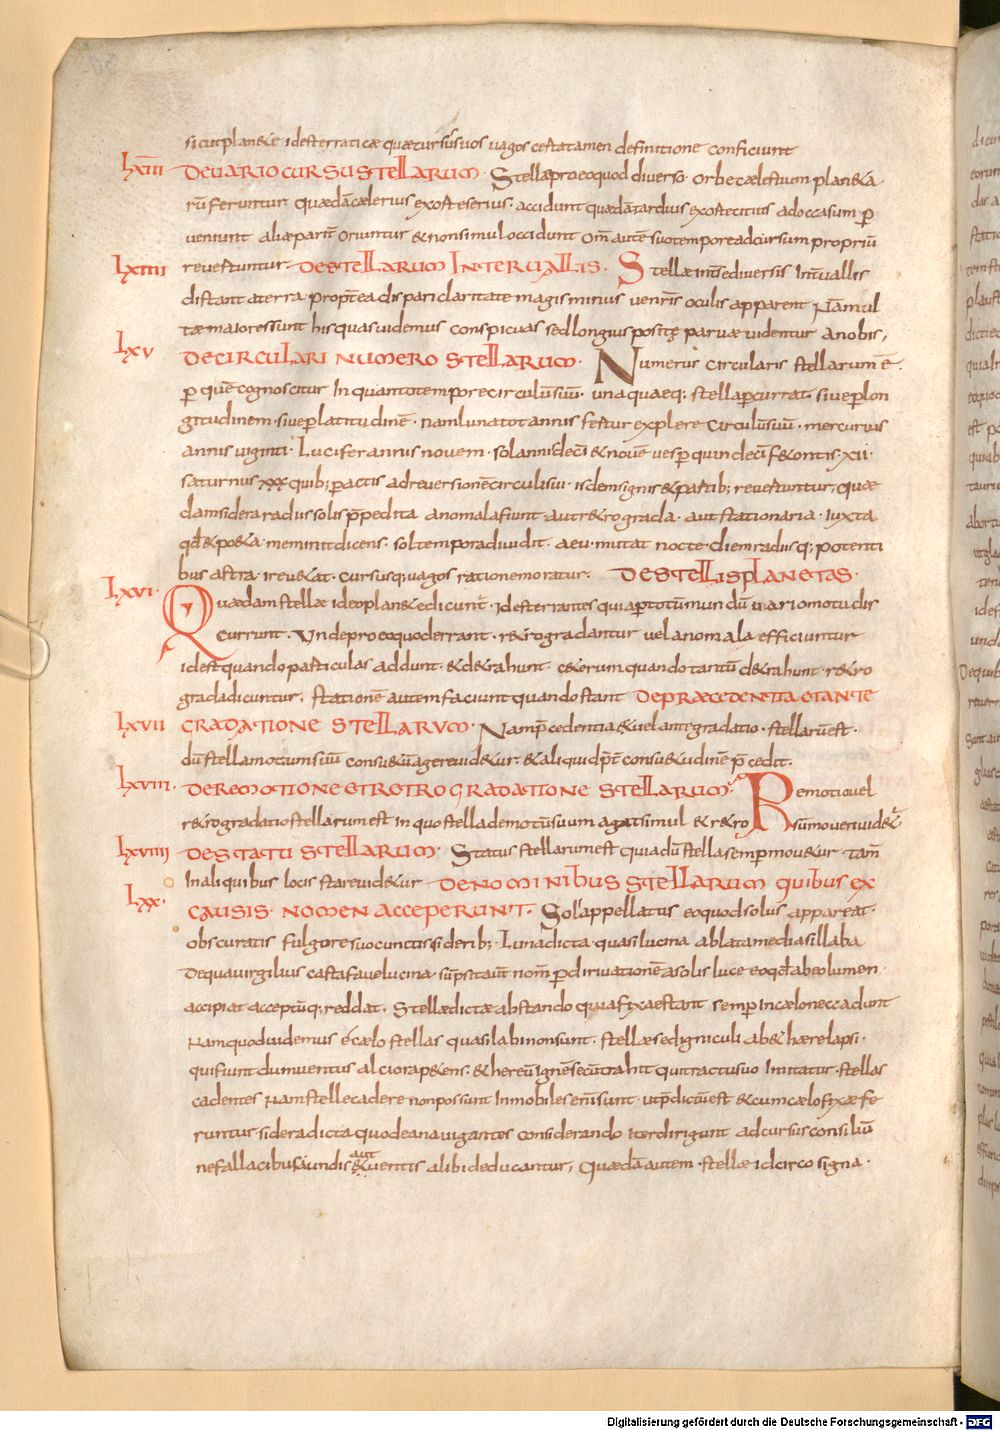 sicut planetę id est erraticæ quæ cursus suos vagos certa tamen definitione conficiunt
LXIII DE VARIO CURSU STELLARUM. Stellæ pro eo quod diverso orbe cælestium planeta
rū feruntur. quædā cælerius exortę serius. accidunt quædā tardius exortę citius ad occasum p̄
veniunt aliæ parit̄ oriuntur & non simul occidunt om̄s autē suo tempore ad cursum propriū
LXIIII revertuntur. DE STELLARUM INTERVALLIS. Stellæ int̄ se diversis int̄vallis
distant a terra propt̄ea dispari claritate magis minus ve nr̄is oculis apparent Nā mul
tæ maiores sunt his quas videmus conspicuas sed longius positę parvæ videntur a nobis,
LXV DE CIRCULARI NUMERO STELLARUM. Numerus circularis stellarum ē.
p̄ quē cognoscitur in quanto tempore circulū suū. unaquaeq; stella p̄currat. sive p̄ lon
gitudinem. sive p̄ latitudinē. nam luna tot annis fertur explere circulū suū. mercurius
annis viginti. Lucifer annis novem. sol annis decē & novē vesp̄ quindecī f&ontis. xii.
saturnus xxx quib; p̄actis ad reversionē circuli sui. isdem signis & partib; revertuntur, quæ
dam sidera radiis solis p̄pedita anomala fiunt. aut r&rograda. aut stationaria. iuxta
qd̄ & po&a. meminit dicens. sol tempora dividit. aevi. mutat nocte. diem radiisq; potenti
bus astra. ire v&at. cursusq; vagos ratione moratur. DE STELLIS PLANETAS.
LXVI. Quædam stellæ ideo plan&e dicunt̄. id est errantes quia p̄ totū mundū vario motu dis
currunt. Unde pro eo quod errant. r&rogradantur vel anomala efficiuntur
id est quando particulas addunt. & d&rahunt. c&erum quando tantū d&rahunt. r&ro
grada dicuntur. stationē autem faciunt quando stant DE PRÆCEDENTIA ET ANTE
LXVII GRADATIONE STELLARVM. Nam p̄cedentia & vel antegradatio. stellarū est.
dū stella motum suū consu&ū agere vid&ur. & aliquid p̄t̄ consu&udinē p̄cedit.
LXVIII. DE REMOTIONE ET RETROGRADATIONE STELLARUM. Remotio vel
r&rogradatio stellarum est in quo stella dum motū suum agat simul & r&ro rsū moveri vid&ur
LXVIIII DE STATU STELLARUM. Status stellarum est quia dū stella semp̄ mov&ur tam̄
in aliquibus locis stare vid&ur DE NOMINIBUS STELLARUM QUIBUS EX
LXX. CAUSIS. NOMEN ACCEPERUNT. Sol appellatus eo quod solus appareat.
obscuratis fulgore suo cunctis siderib; Luna dicta. quasi lucina ablata media sillaba
de qua virgilius casta fave lucina. sūpsit autē nom̄ p̄ dirivationē a solis luce eo qd̄ ab eo lumen
accipiat acceptūq; reddat. Stellæ dictæ a bstando quia fixae stant semp̄ in cælo nec cadunt
Nam quod videmus e cælo stellas quasi labi non sunt. stellæ sed igniculi ab &hære lapsi.
qui fiunt dum ventus altiora p&ens. &hereū ignē secū trahit qui tractu suo imitatur. stellas
cadentes Nam stelle cadere non possunt inmobiles enī sunt. ut p̄dictū est & cum cælo fixæ fe
runtur. sidera dicta quod ea navigantes considerando iter dirigunt ad cursus consiliū
ne fallacibus undis aut ventis alibi deducantur, Quædā autem. stellæ idcirco signa.
Digitalisierung gefördert durch die Deutsche Forschungsgemeinschaft - DFG